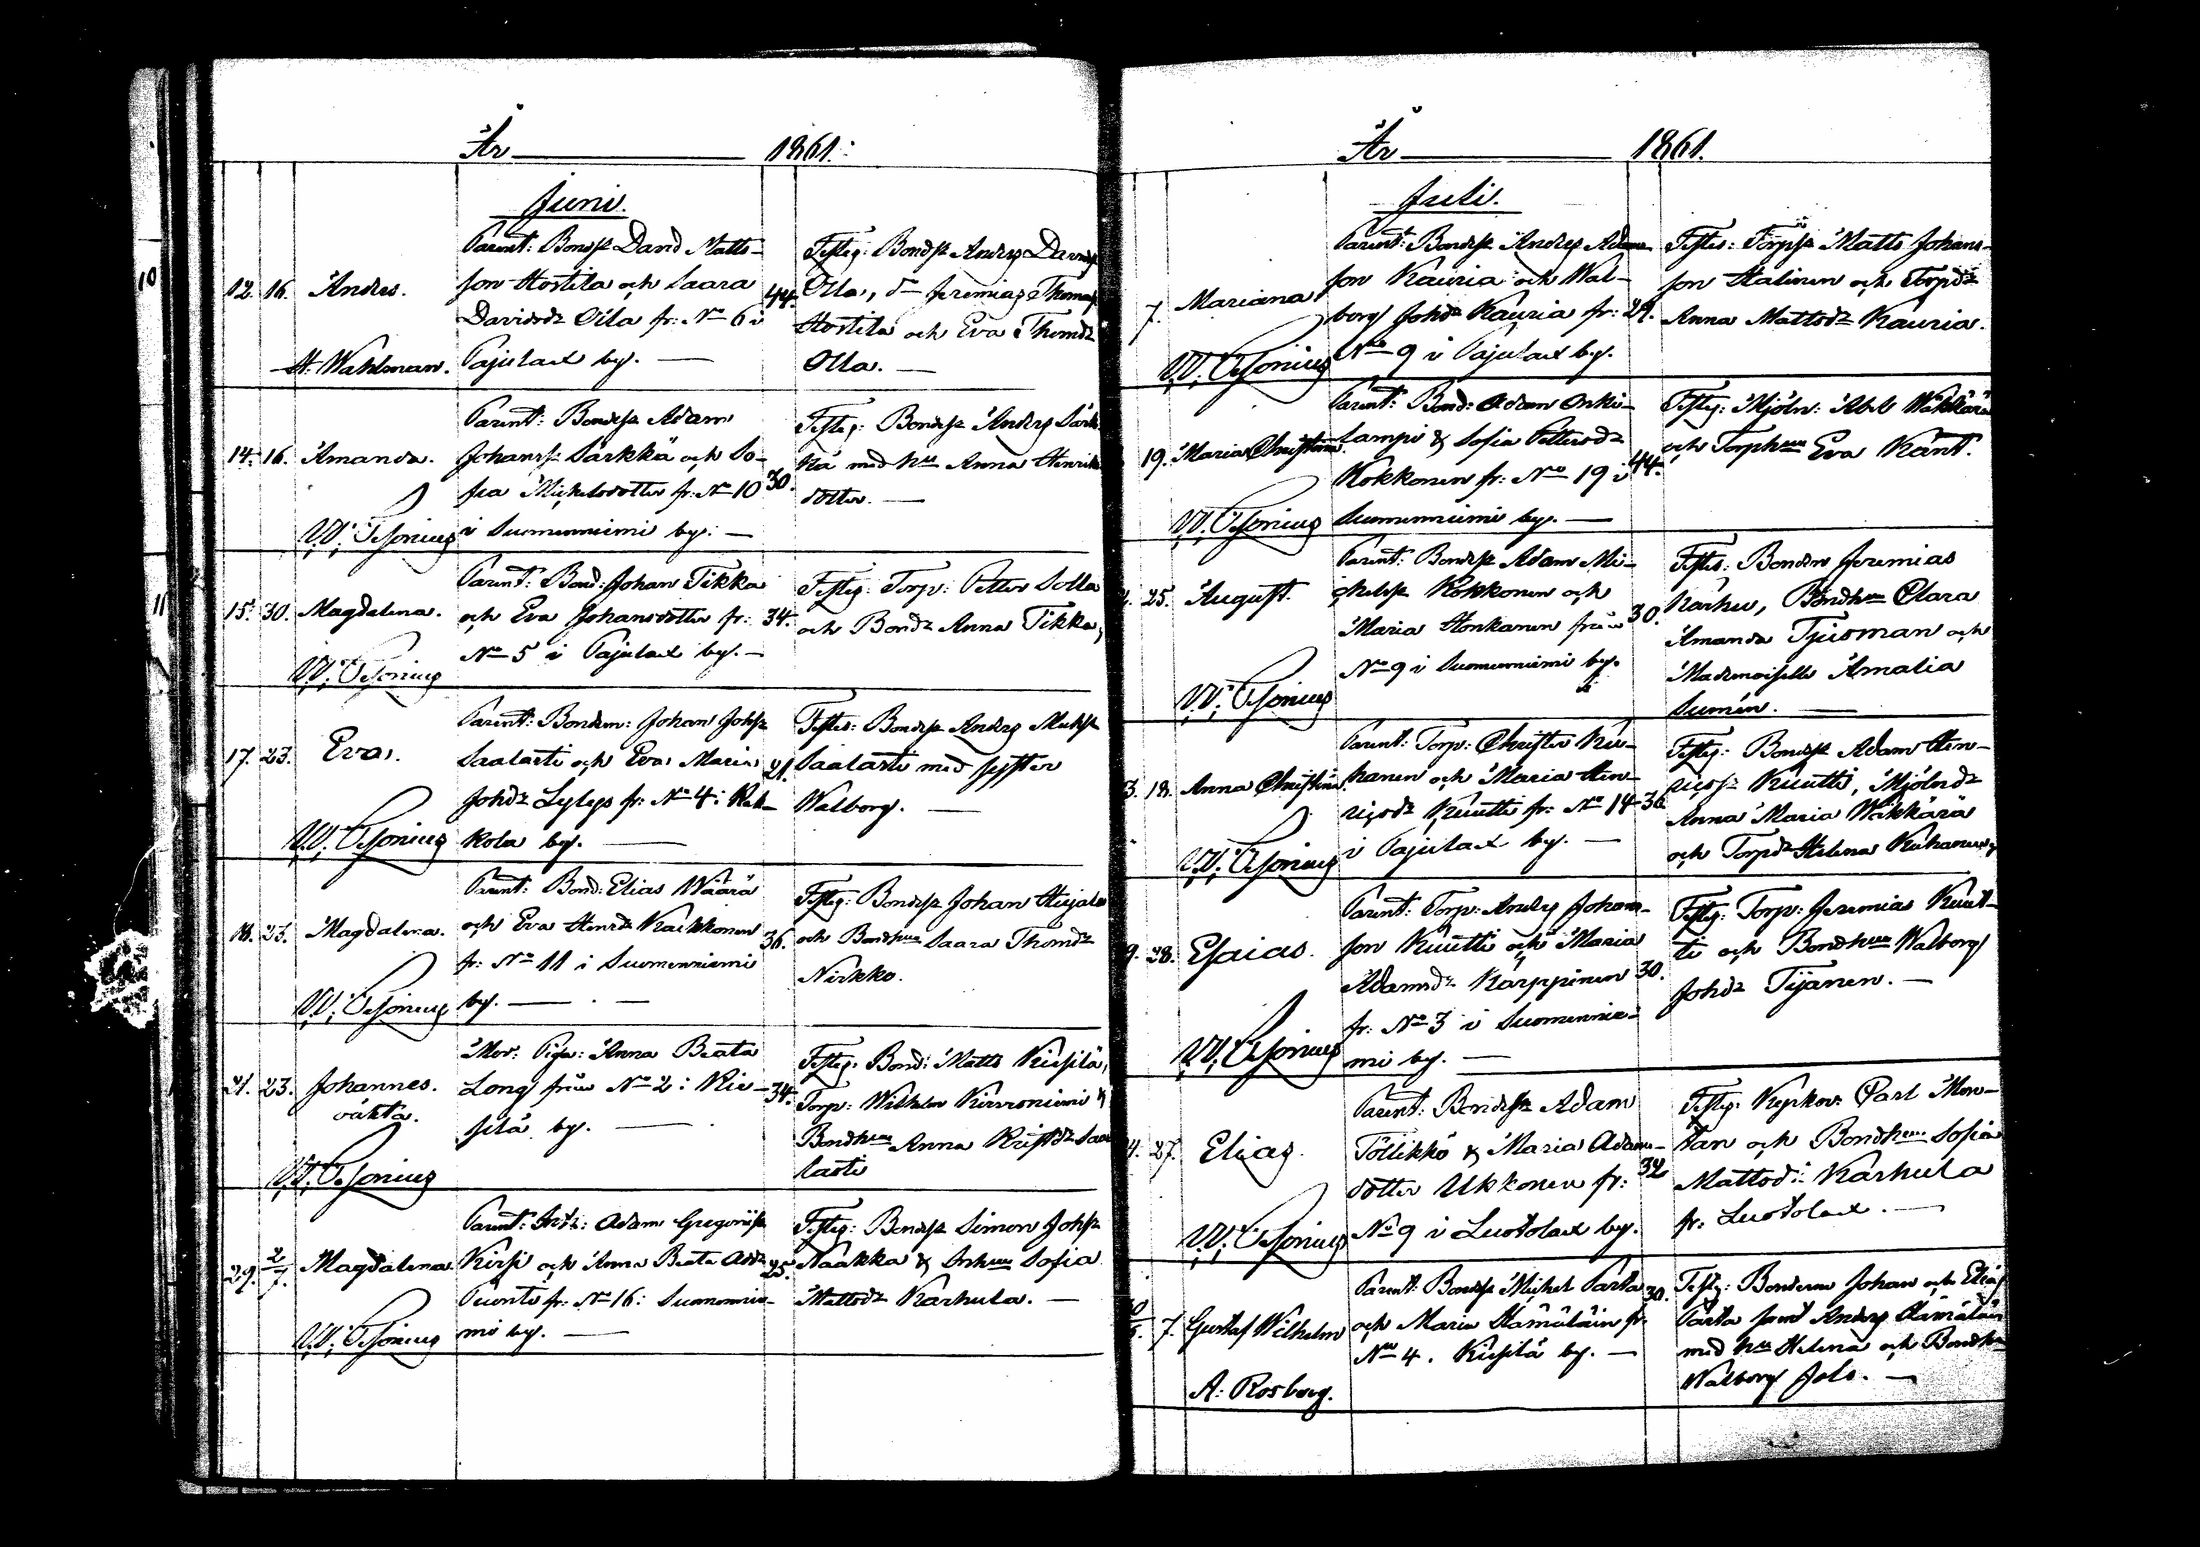 År 1861.
Juni.
12. 16. Andres.
H. Wahlman.
Parent: Bondes. David Matts-
son Hostila och Saara
Davidsdr Olla fr: No 6 i
Pajulax by. —
44.
Testes: Bondes. Anders Davids.
Olla, do Jeremias Thomas.
Hostila och Eva Thomdr
Olla. —
14. 16. Amanda.
W. Pesonius
Parent: Bondes. Adam
Johanss. Särkkä och So-
fia Michelsdotter fr: No 10
i Suomenniemi by. —
30.
Testes: Bondes. Anders Särk-
kä med hu Anna Henriks
dotter. —
15. 30. Magdalena.
W. Pesonius
Parent: Bond: Johan Tikka
och Eva Johansdotter fr:
No 5 i Pajulax by. —
34.
Testes: Torp: Petter Solla
och Bondr Anna Tikka,
17. 23. Eva.
W. Pesonius
Parent: Bondem: Johan Johss.
Saalasti och Eva Maria
Johdr Lylys fr: No 4 i
kola by. —
21.
Testes: Bondes. Anders
Saalasti med syster
Walborg. —
18. 23. Magdalena.
W. Pesonius
Parent: Bond: Elias Määrä
och Eva Henrdr Kaikkonen
fr: No 11 i Suomenniemi
by. —
36.
Testes: Bondes. Johan
och Bondhu Saara Thomdr
Nirkko.
21. 23. Johannes.
oäkta.
W. Pesonius
Mor: Pigan: Anna Beata
Long från No 2 i Kie-
silä by. —
34.
Testes: Bond: Matts Kiesilä,
Torp: Wilhelm Kirroniemi &
Bondhu Anna Kristdr Saa
lasti
29. 2/7. Magdalena.
W. Pesonius
Parent: Inh: Adam Gregoriis.
Kirsi och Anna Beata Addr
Puonti fr: No 16: Suomennie-
mi by. —
25.
Testes: Bondes. Simon Johss.
Naakka & Inhu Sofia
Mattsdr Karhula. —
År 1861.
Juli.
7. Mariana
W. Pesonius
Parent: Bondes. Anders Adams-
son Kauria och Wal-
borg Johdr Kauria fr:
No 9 i Pajulax by.
29.
Testes: Torps. Matts Johans-
son Halinen och Torpdr
Anna Mattsdr Kauria.
19. Maria Christina.
W. Pesonius
Parent: Bond: Adam Onki-
lampi & Sofia Pettersdr
Kokkonen fr: No 19 i
Suomenniemi by. —
44.
Testes: Mjöln: Abel Wäkkärä
och Torphu Eva Känt.
25. August.
W. Pesonius
Parent: Bondes. Adam Mi-
chels. Kokkonen och
Maria Honkanen från
No 9 i Suomenniemi by.
30.
Testes: Bonden Jeremias
Karhu, Bondhu Clara
Amanda Tjusman och
Mademoiselle Amalia
Sumén. —
3. 18. Anna Christina.
W. Pesonius
Parent: Torp: Christer Kiu-
hanen och Maria Hen-
ricsdr Kuutti fr: No 14
i Pajulax by. —
36.
Testes: Bondes. Adam Hen-
rics. Kuutti, Mjölndr
Anna Maria Wäkkärä
och Torpdr Helena Kiuhanen,
9. 28. Esaias.
W. Pesonius
Parent: Torp: Anders Johans-
son Kuutti och Maria
Adamsdr Karppinen
fr: No 3 i Suomennie-
mi by. —
30.
Testes: Torp: Jeremias Kuut-
ti och Bondhu Walborg
Johdr Tyänen. —
27. Elias.
W. Pesonius
Parent: Bondes. Adam
Töllikkö & Maria Adams-
dotter Ukkonen fr:
No 9 i Luotolax by.
32
Testes: Kyrkov: Carl Mon-
tan och Bondhu Sofia
Mattsd: Karhula
fr: Luotolax. —
7. Gustaf Wilhelm
A. Rosberg.
Parent: Bondes. Michel Parta
och Maria Hämäläin fr:
No 4. Kiesilä by. —
30.
Testes: Bönderna Johan och Elias
Parta samt Anders Hämäläin
med hu Helena och Bondhu
Walborg Jolo. —